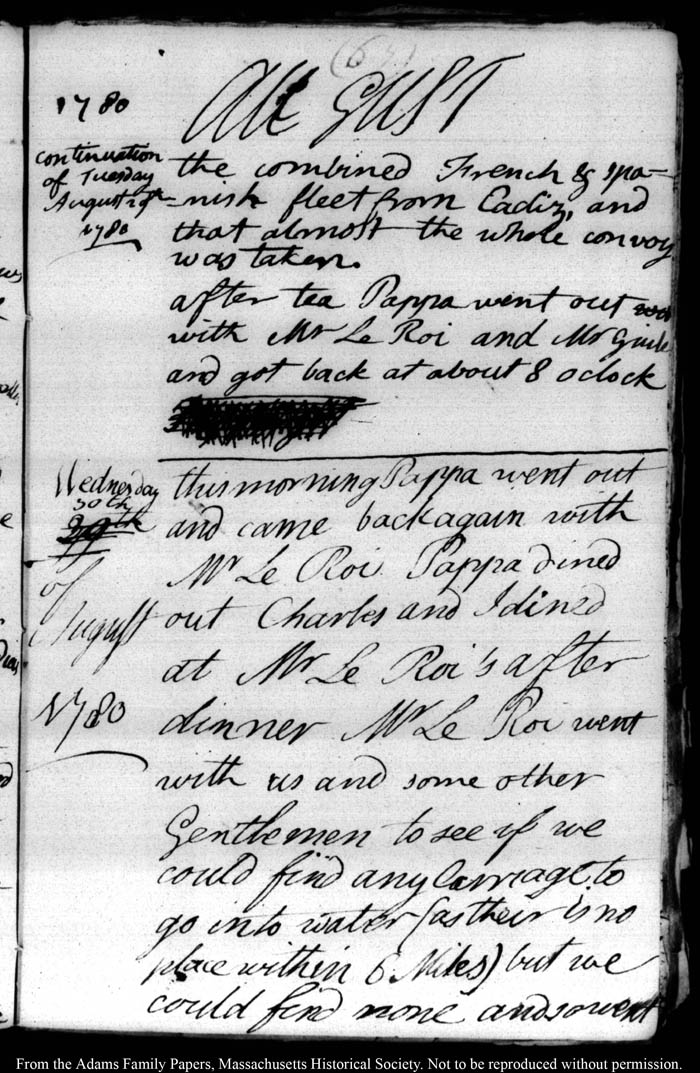 (64)
1780
AUGUST
continuation
of Tuesday
August 29th
1780
the combined French & spa=
=nish fleet from Cadiz, and
that almost the whole convoy
was taken.
after tea Pappa went out
with Mr Le Roi and Mr Guile
and got back at about 8 oclock
Wednesday
30th
29th
of
August
1780
this morning Pappa went out
and came back again with
Mr Le Roi Pappa dined
out Charles and I dined
at Mr Le Roi's after
dinner Mr Le Roi went
with us and some other
Gentlemen to see if we
could find any Carriage to
go into water (as their is no
place within 6 Miles) but we
could find none and so went
From the Adams Family Papers, Massachusetts Historical Society. Not to be reproduced without permission.